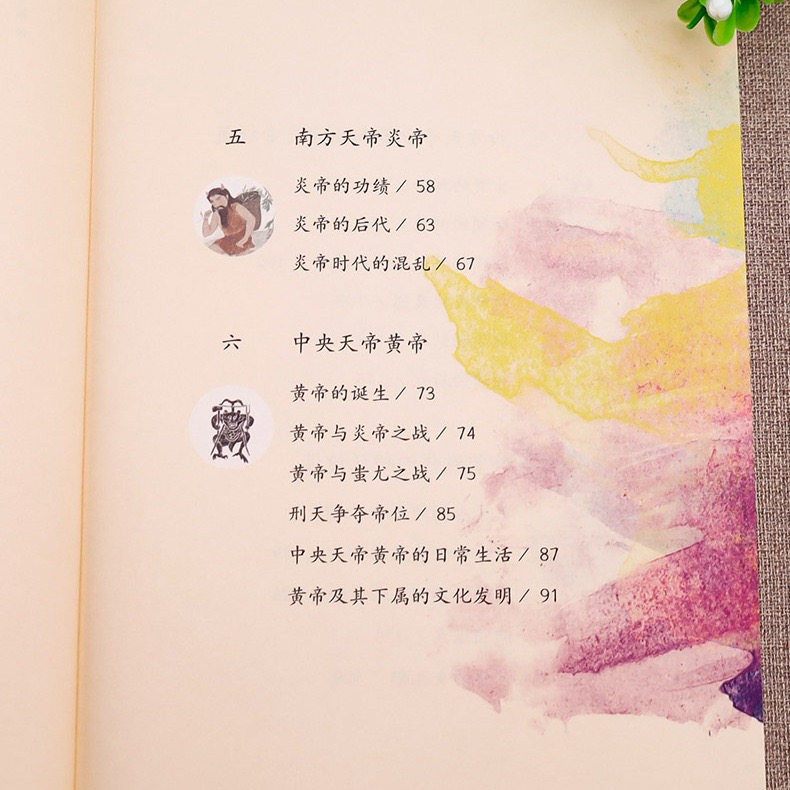 五 南方天帝炎帝
炎帝的功绩 / 58
炎帝的后代 / 63
炎帝时代的混乱 / 67
六 中央天帝黄帝
黄帝的诞生 / 73
黄帝与炎帝之战 / 74
黄帝与蚩尤之战 / 75
刑天争夺帝位 / 85
中央天帝黄帝的日常生活 / 87
黄帝及其下属的文化发明 / 91